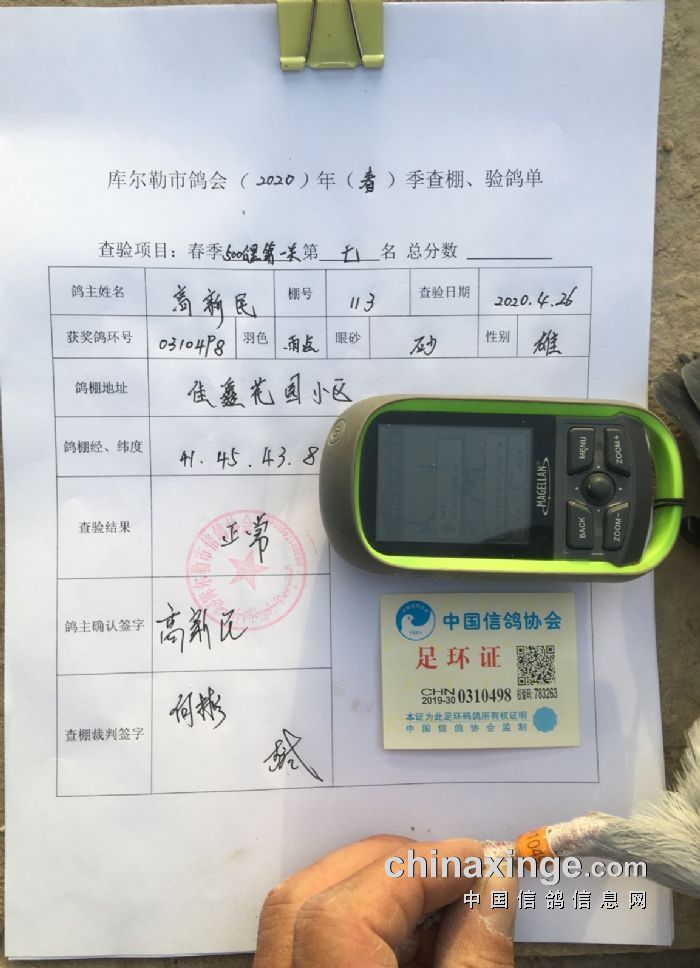 库尔勒市鸽会（2020）年（春）季查棚、验鸽单
查验项目：春季500公里第一关第 七 名 总分数
鸽主姓名 高新民 棚号 113 查验日期 2020.4.26
获奖鸽环号 0310498 羽色 雨点 眼砂 砂 性别 雄
鸽棚地址 佳鑫花园小区
鸽棚经、纬度 41.45.43.8
查验结果 正常
鸽主确认签字 高新民
查棚裁判签字 何彬
MAGELLAN
MENU
ZOOM+
BACK
ZOOM-
中国信鸽协会
足环证
CHN
2019-30 0310498 校验码:783263
本证为此足环码鸽所有权证明
中国信鸽协会监制
104
chinaxinge.com
中国信鸽信息网